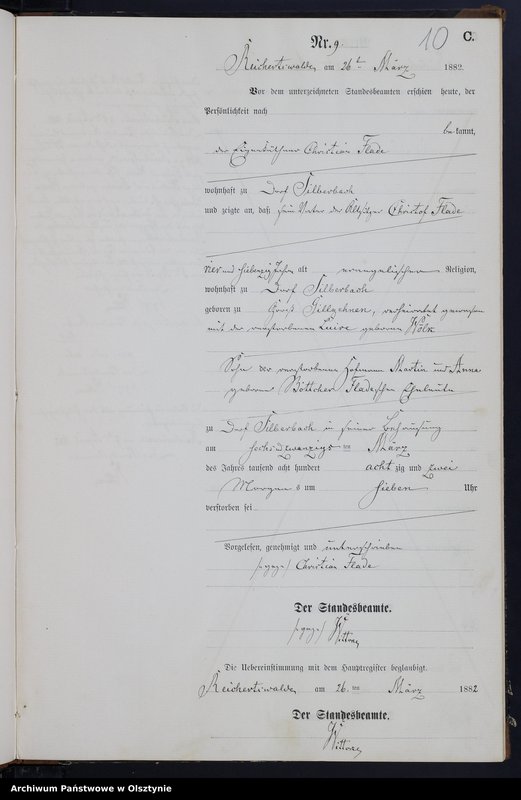 10
Nr. 9.
C.
Reichertswalde, am 26ten März 1882.
Vor dem unterzeichneten Standesbeamten erschien heute, der
Persönlichkeit nach
bekannt,
der Eigenkäthner Christian Flade
wohnhaft zu Dorf Silberbach
und zeigte an, daß sein Vater der Altsitzer Christof Flade
vier und siebenzig Jahre alt evangelischer Religion,
wohnhaft zu Dorf Silberbach
geboren zu Groß verheirathet gewesen
mit der verstorbenen Luise geborene Wölk
Sohn der verstorbenen Hofmann Martin und Anna
geborene Böttcher Fladeschen Eheleute
zu Dorf Silberbach in seiner Behausung
am sechsundzwanzigsten März
des Jahres tausend acht hundert achtzig und zwei
Morgens um sieben Uhr
verstorben sei.
Vorgelesen, genehmigt und unterschrieben
/:gez:/ Christian Flade
Der Standesbeamte.
/:gez:/
Die Uebereinstimmung mit dem Hauptregister beglaubigt.
Reichertswalde, am 26.ten März 1882
Der Standesbeamte.
Archiwum Państwowe w Olsztynie